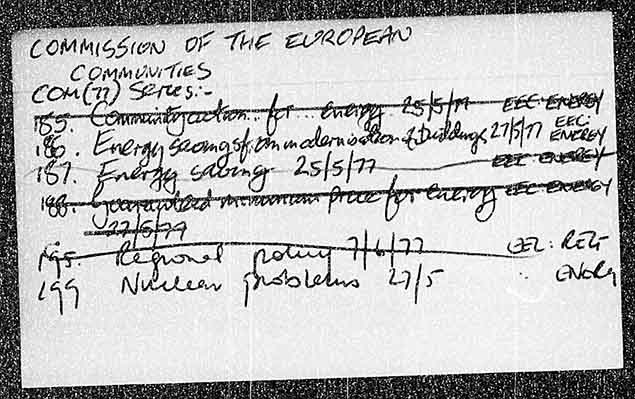 COMMISSION OF THE EUROPEAN
COMMUNITIES
COM(77) Series:-
185. Community action for energy 25/5/77 EEC: ENERGY
186. Energy savings from modernisation of buildings 27/5/77 EEC: ENERGY
187. Energy saving 25/5/77 EEC: ENERGY
188. Guaranteed minimum price for energy EEC: ENERGY
27/5/77
195. Regional policy 7/6/77 EEC:
199 Nuclear problems 27/5